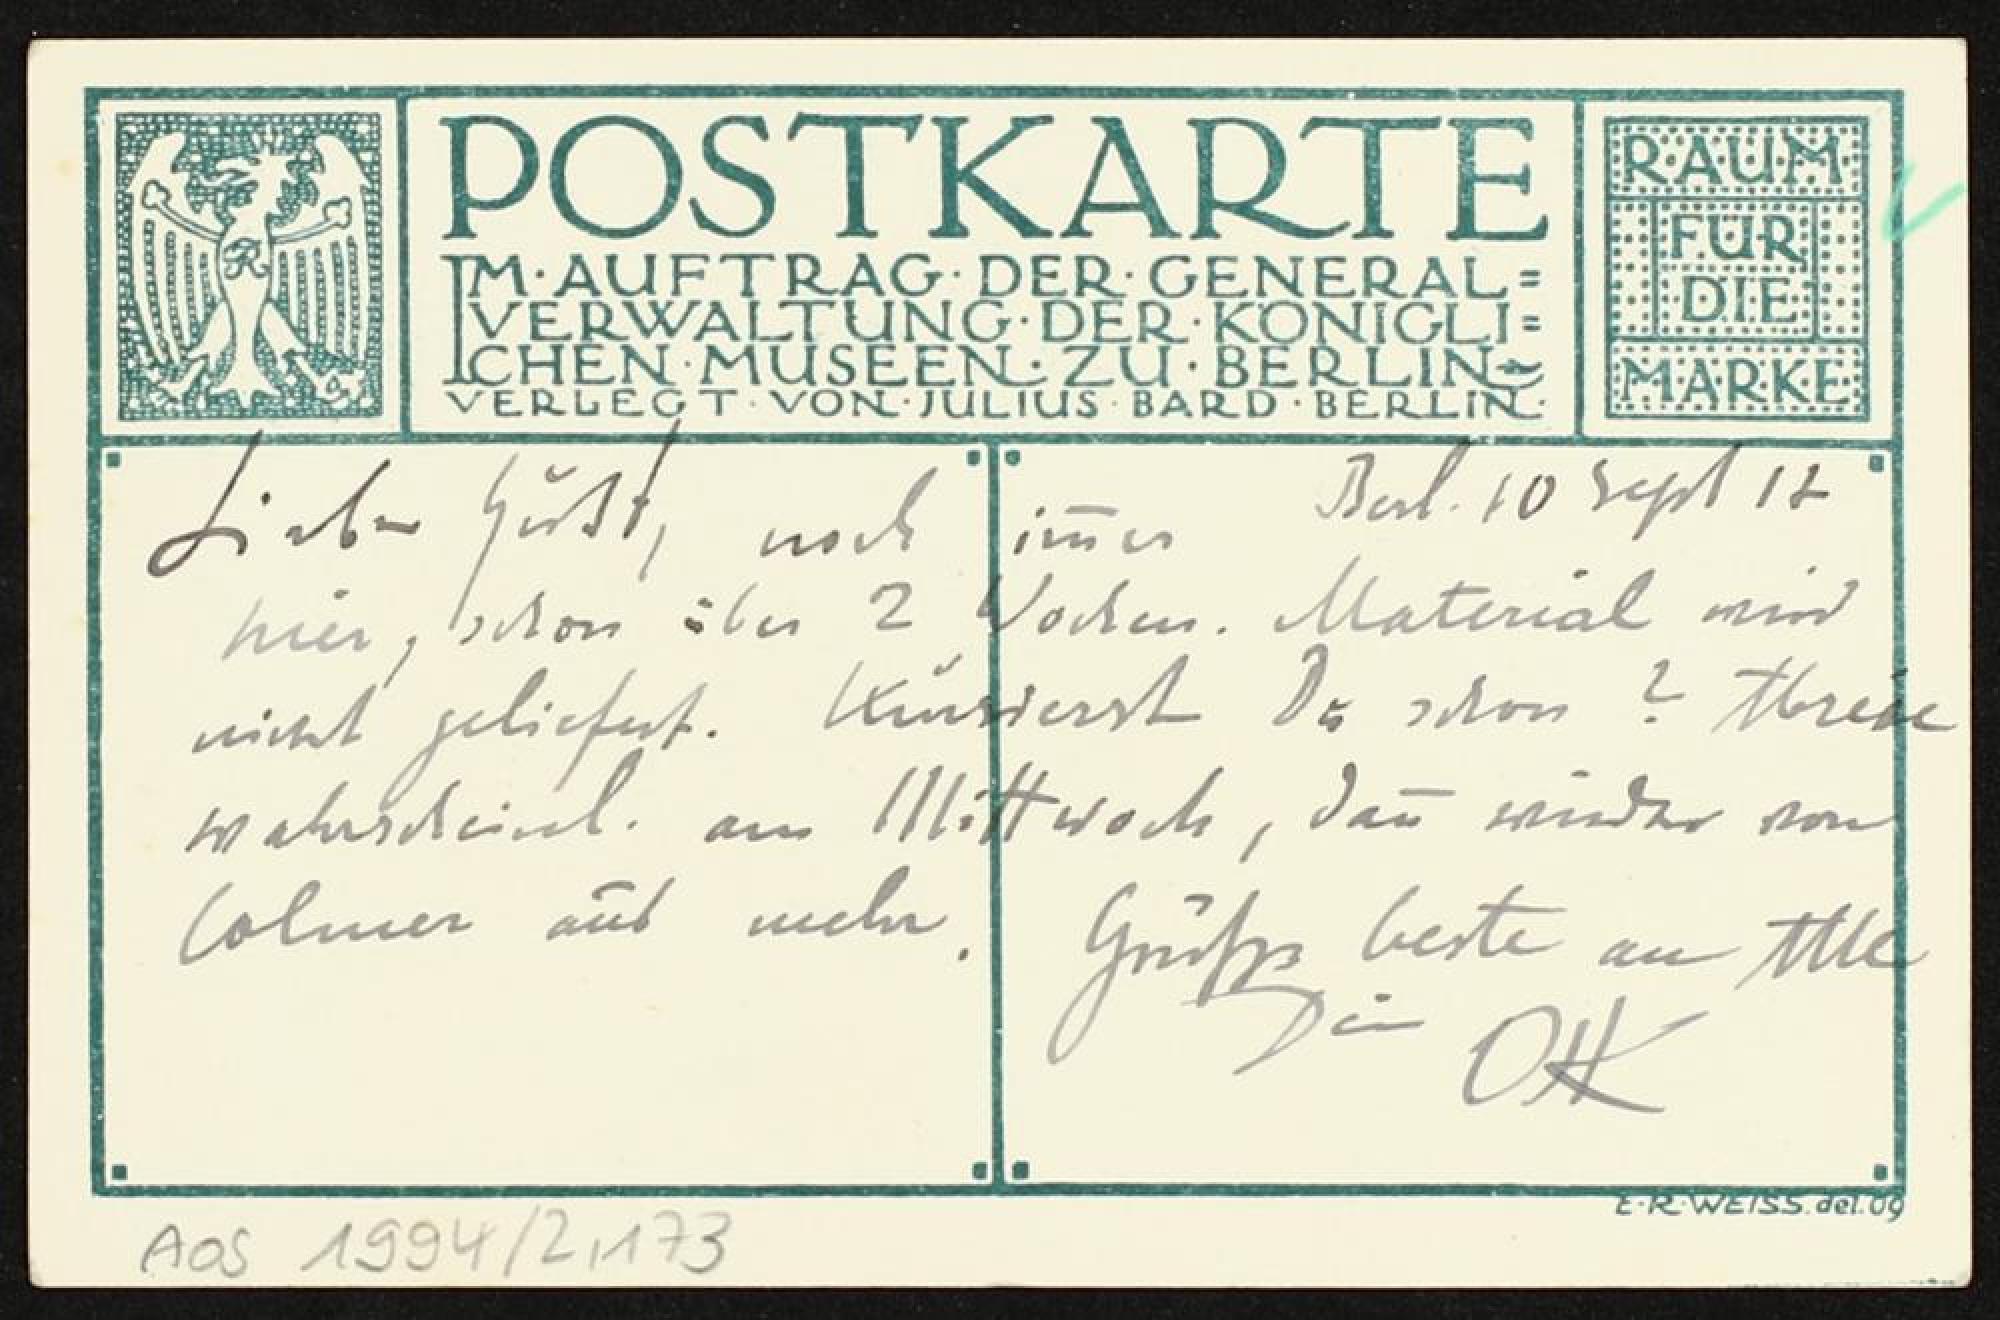 POSTKARTE
IM·AUFTRAG·DER·GENERAL=
VERWALTUNG·DER·KÖNIGLI=
CHEN·MUSEEN·ZU·BERLIN
VERLEGT·VON·JULIUS·BARD·BERLIN·
R
RAUM
FÜR
DIE
MARKE
Berl. 10 Sept 17
Lieber Gust, noch im̅er
hier, schon über 2 Wochen. Material wird
nicht geliefert. Kursierst Du schon? Abreise
wahrscheinl. am Mittwoch, dan̅ wieder von
Colmer aus mehr. Grüße beste an Alle
Dein OHK
E·R·WEISS. del. 09
AOS 1994/2,173